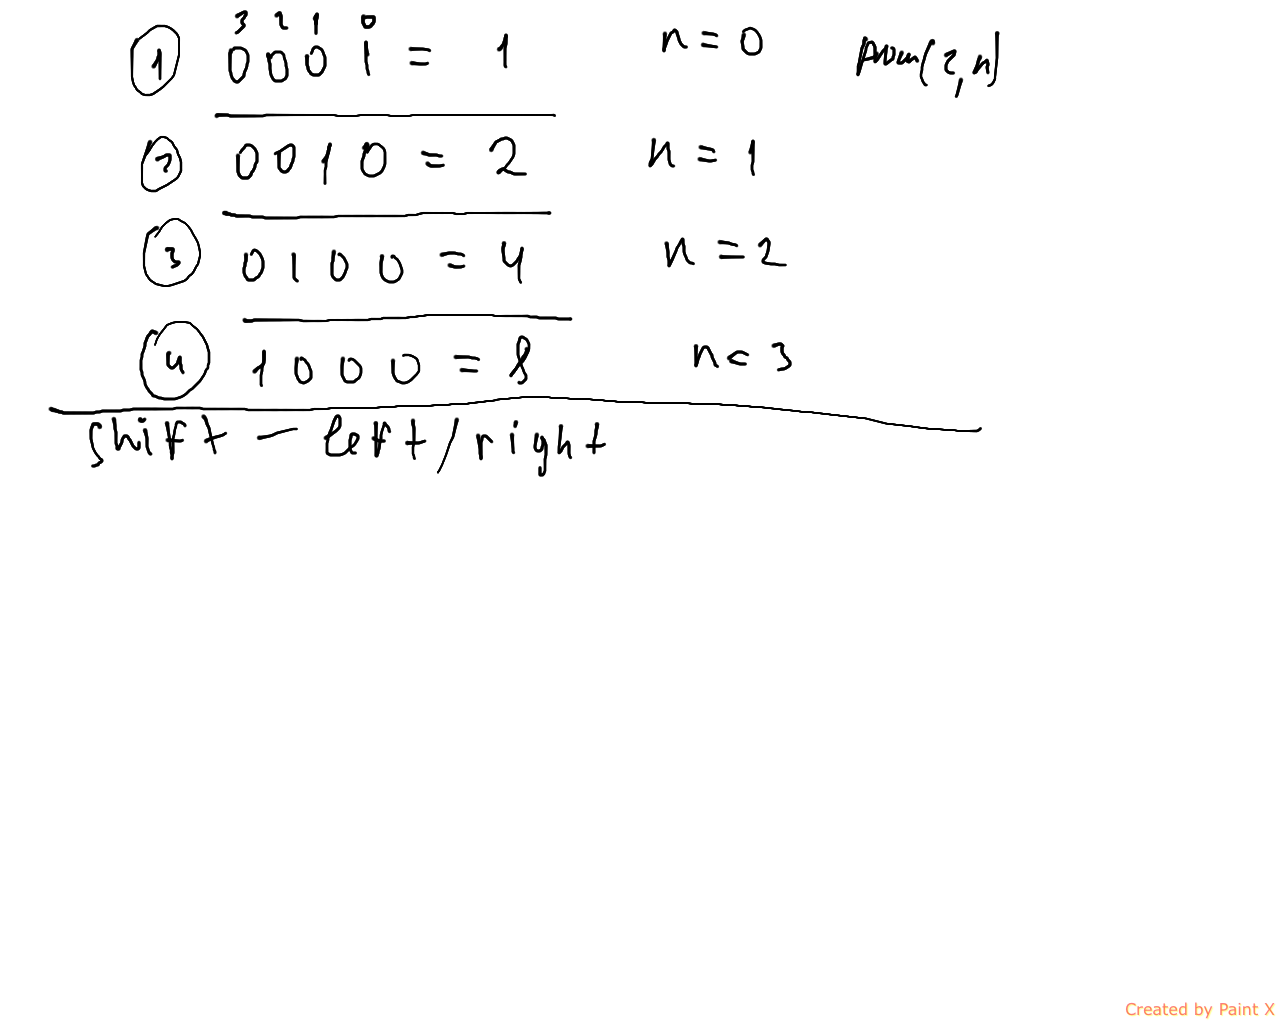 3 2 1 0
1 0001 = 1 n = 0 pow(2,n)
2 0010 = 2 n = 1
3 0100 = 4 n = 2
4 1000 = 8 n = 3
shift - left/right
Created by Paint X